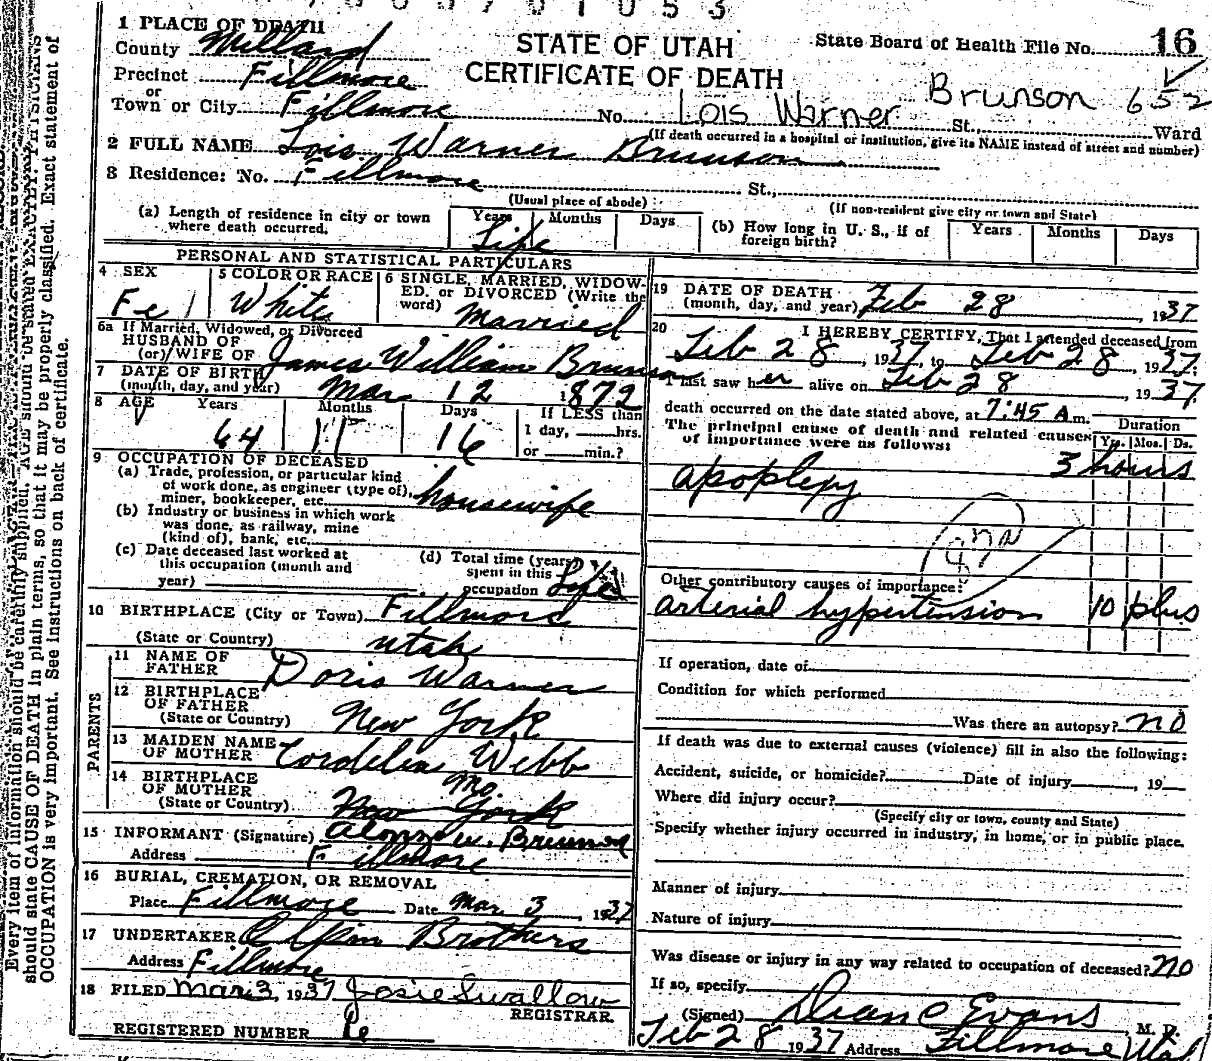 1 PLACE OF DEATH
County Millard
STATE OF UTAH
CERTIFICATE OF DEATH
State Board of Health File No. 16
Precinct Fillmore
or
Town or City Fillmore No. Lois Warner Brunson 652 St. Ward
(If death occurred in a hospital or institution, give its NAME instead of street and number)
2 FULL NAME Lois Warner Brunson
3 Residence: No. Fillmore St.,
(Usual place of abode)
(If non-resident give city or town and State)
(a) Length of residence in city or town where death occurred. Years Months Days
Life
(b) How long in U. S., if of foreign birth? Years Months Days
PERSONAL AND STATISTICAL PARTICULARS
4 SEX Fe
5 COLOR OR RACE White
6 SINGLE, MARRIED, WIDOW-
ED, or DIVORCED (Write the
word) Married
6a If Married, Widowed, or Divorced
HUSBAND OF
(or) WIFE OF James William Brunson
7 DATE OF BIRTH
(month, day, and year) Mar 12 1872
8 AGE Years Months Days If LESS than
64 11 16 1 day, hrs.
or min.?
9 OCCUPATION OF DECEASED
(a) Trade, profession, or particular kind
of work done, as engineer (type of),
miner, bookkeeper, etc. housewife
(b) Industry or business in which work
was done, as railway, mine
(kind of), bank, etc.
(c) Date deceased last worked at
this occupation (month and
year)
(d) Total time (years)
spent in this
occupation Life
10 BIRTHPLACE (City or Town) Fillmore
(State or Country) Utah
PARENTS
11 NAME OF
FATHER Doris Warner
12 BIRTHPLACE
OF FATHER
(State or Country) New York
13 MAIDEN NAME
OF MOTHER Cordelia Webb
14 BIRTHPLACE
OF MOTHER Mo.
(State or Country) New York
15 INFORMANT (Signature) Alonzo W. Brunson
Address Fillmore
16 BURIAL, CREMATION, OR REMOVAL
Place Fillmore Date Mar 3, 1937
17 UNDERTAKER Olpin Brothers
Address Fillmore
18 FILED Mar 3, 1937 Josie Swallow
REGISTRAR.
REGISTERED NUMBER
19 DATE OF DEATH
(month, day, and year) Feb 28, 1937
20 I HEREBY CERTIFY, That I attended deceased from
Feb 28, 1937, to Feb 28, 1937.
I last saw her alive on Feb 28, 1937.
death occurred on the date stated above, at 7:45 A m.
The principal cause of death and related causes
of importance were as follows:
Duration
Yrs. Mos. Ds.
3 hours
apoplexy
Other contributory causes of importance:
arterial hypertension 10 plus
If operation, date of
Condition for which performed
Was there an autopsy? no
If death was due to external causes (violence) fill in also the following:
Accident, suicide, or homicide? Date of injury , 19
Where did injury occur?
(Specify city or town, county and State)
Specify whether injury occurred in industry, in home, or in public place.
Manner of injury
Nature of injury
Was disease or injury in any way related to occupation of deceased? no
If so, specify
(Signed) Deane Evans M. D.
Feb 28 1937 Address Fillmore Utah
Every item of information should be carefully supplied. AGE should be stated EXACTLY. PHYSICIANS
should state CAUSE OF DEATH in plain terms, so that it may be properly classified. Exact statement of
OCCUPATION is very important. See instructions on back of certificate.